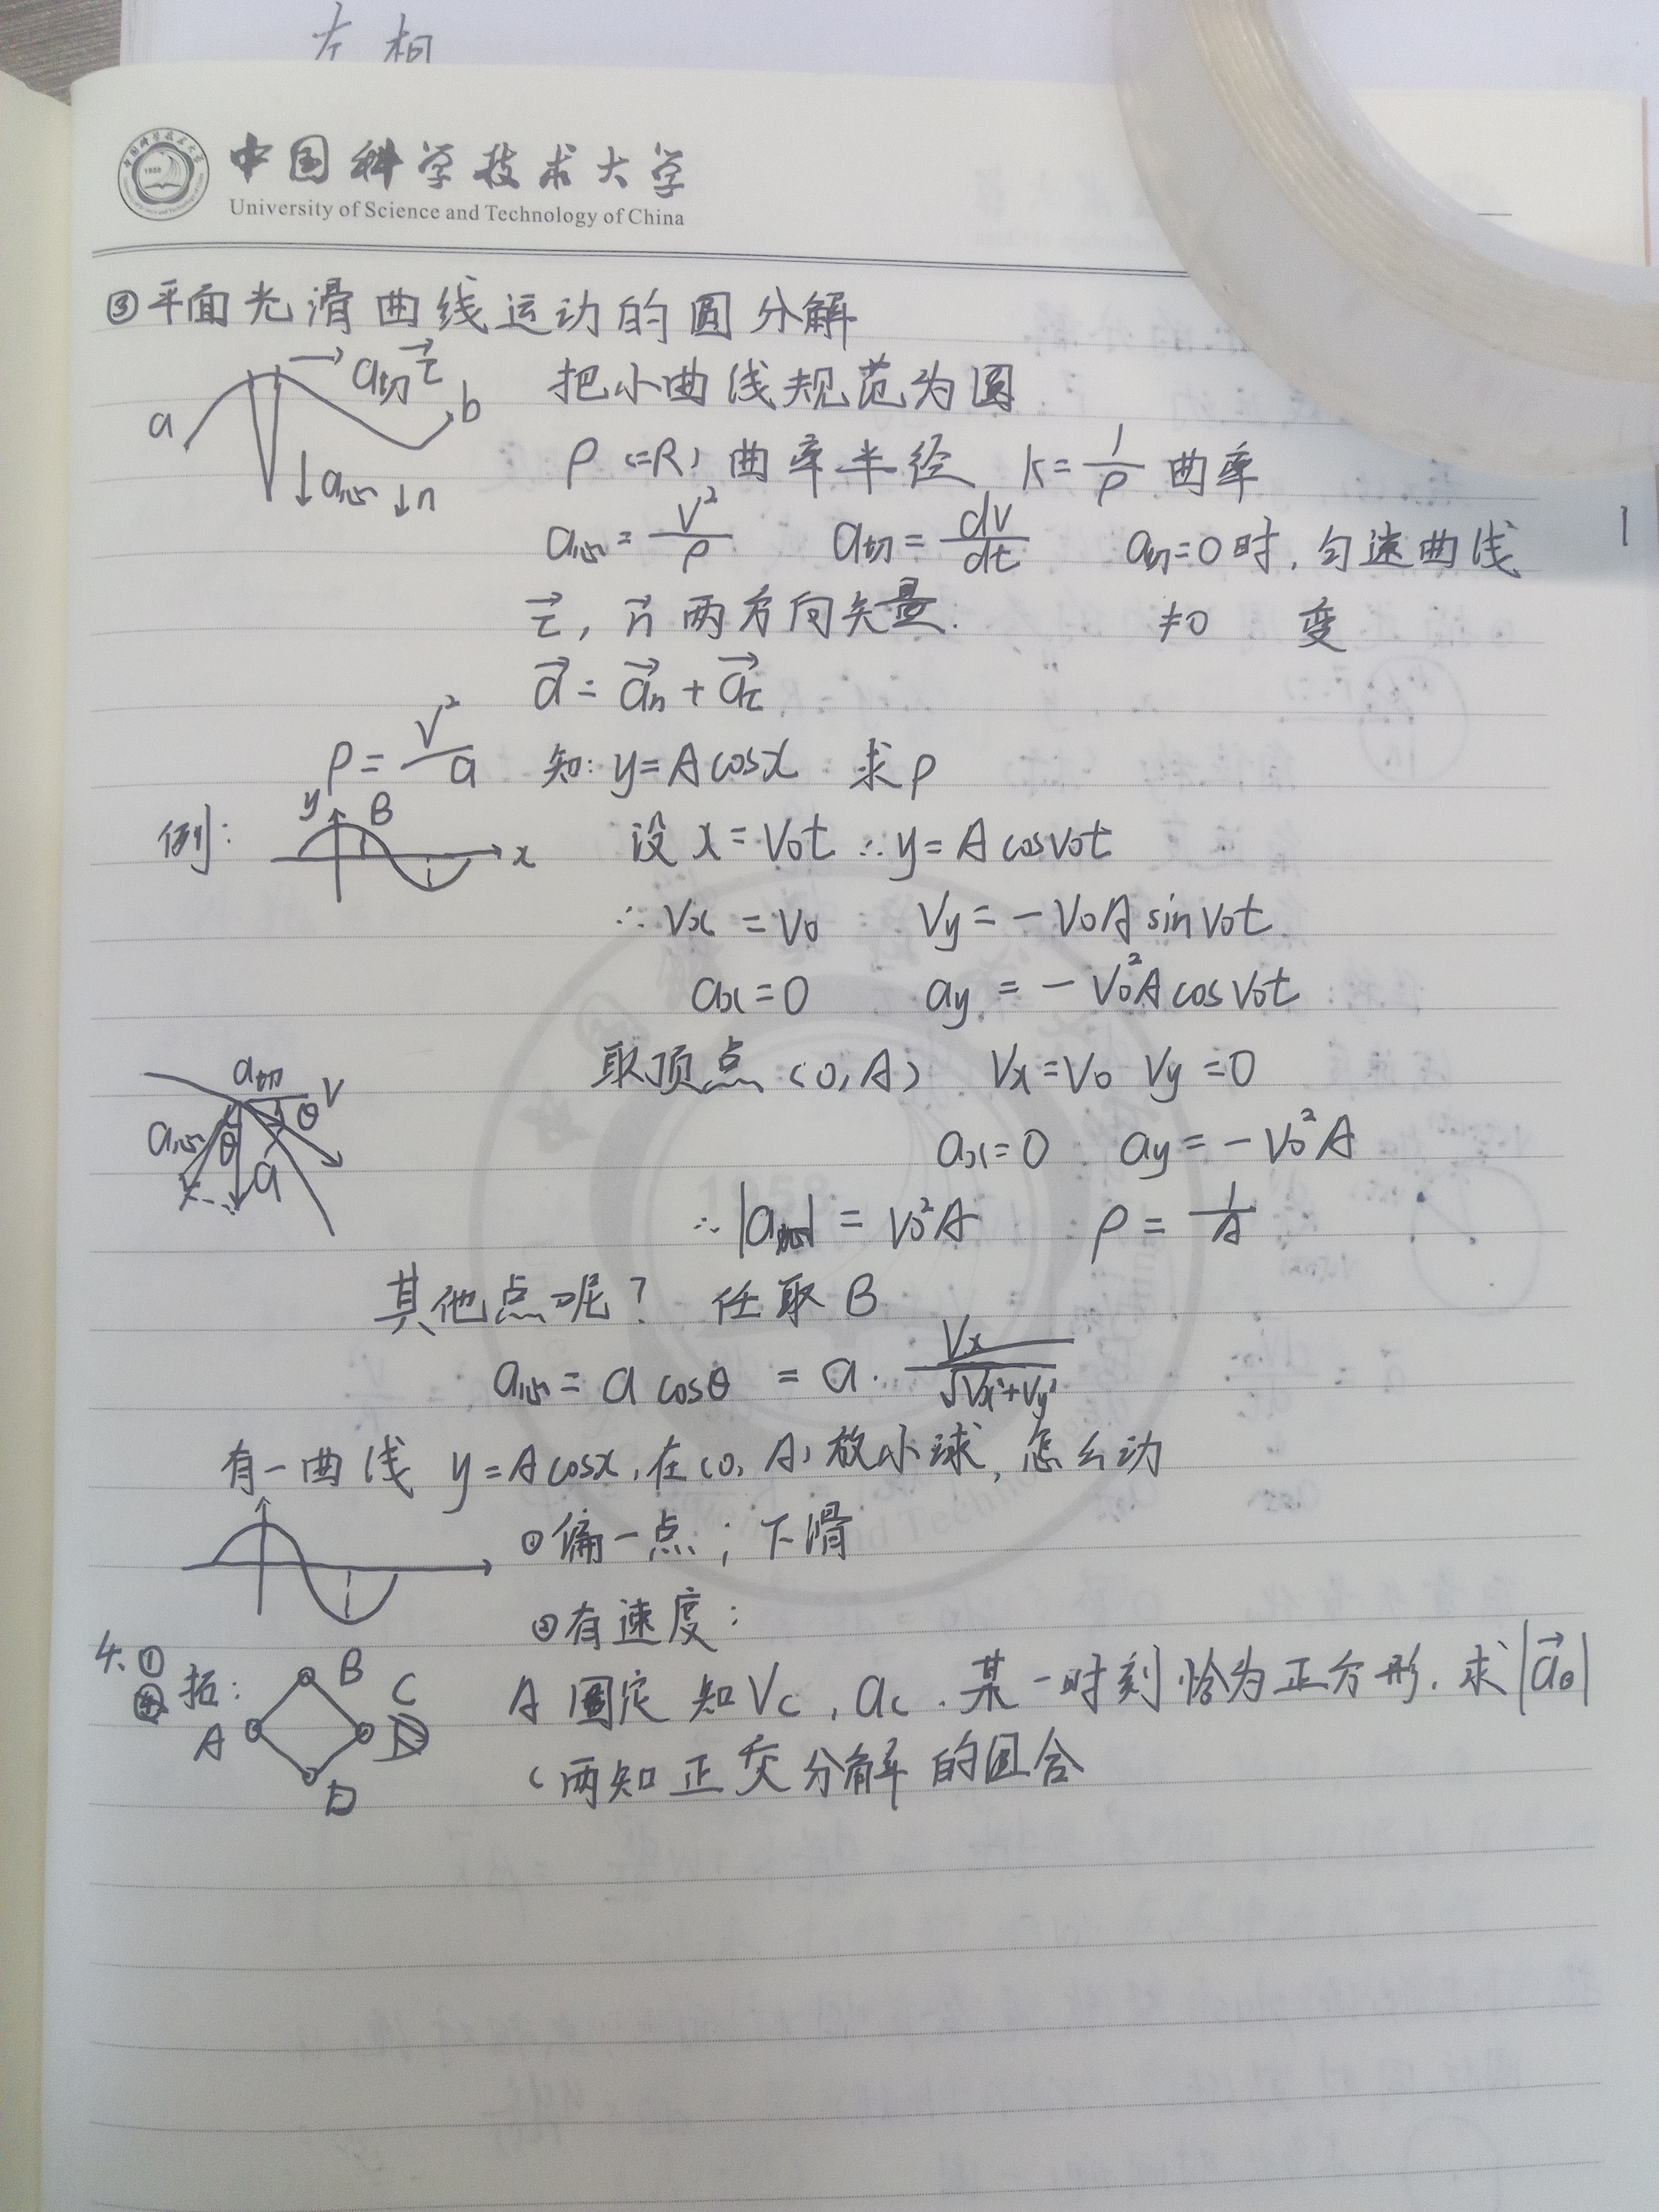 左相
中国科学技术大学
University of Science and Technology of China
③平面光滑曲线运动的圆分解
a a切 τ⃗ b
a心 ↓n
把小曲线规范为圆
ρ(=R)曲率半径 k=1/ρ 曲率
a心=V²/ρ a切=dv/dt a切=0时,匀速曲线
τ⃗, n⃗ 两方向矢量. ≠0 变
a⃗=a⃗n+a⃗τ
ρ=V²/a 知:y=Acosx 求ρ
例: y B x
设x=V₀t ∴y=Acosv₀t
∴Vx=V₀ Vy=-V₀Asinv₀t
ax=0 ay=-V₀²Acosv₀t
取顶点(0,A) Vx=V₀ Vy=0
a切 V θ
a心 θ a
ax=0 ay=-V₀²A
∴|a心|=V₀²A ρ=1/A
其他点呢? 任取B
a心=acosθ=a·Vx/√Vx²+Vy²
有一曲线 y=Acosx,在(0,A)放小球,怎么动
①偏一点;下滑
②有速度:
4.①
拓: A B C D
A固定 知Vc,ac.某一时刻恰为正方形.求|a⃗B|
(两知正交分解的回合
1958